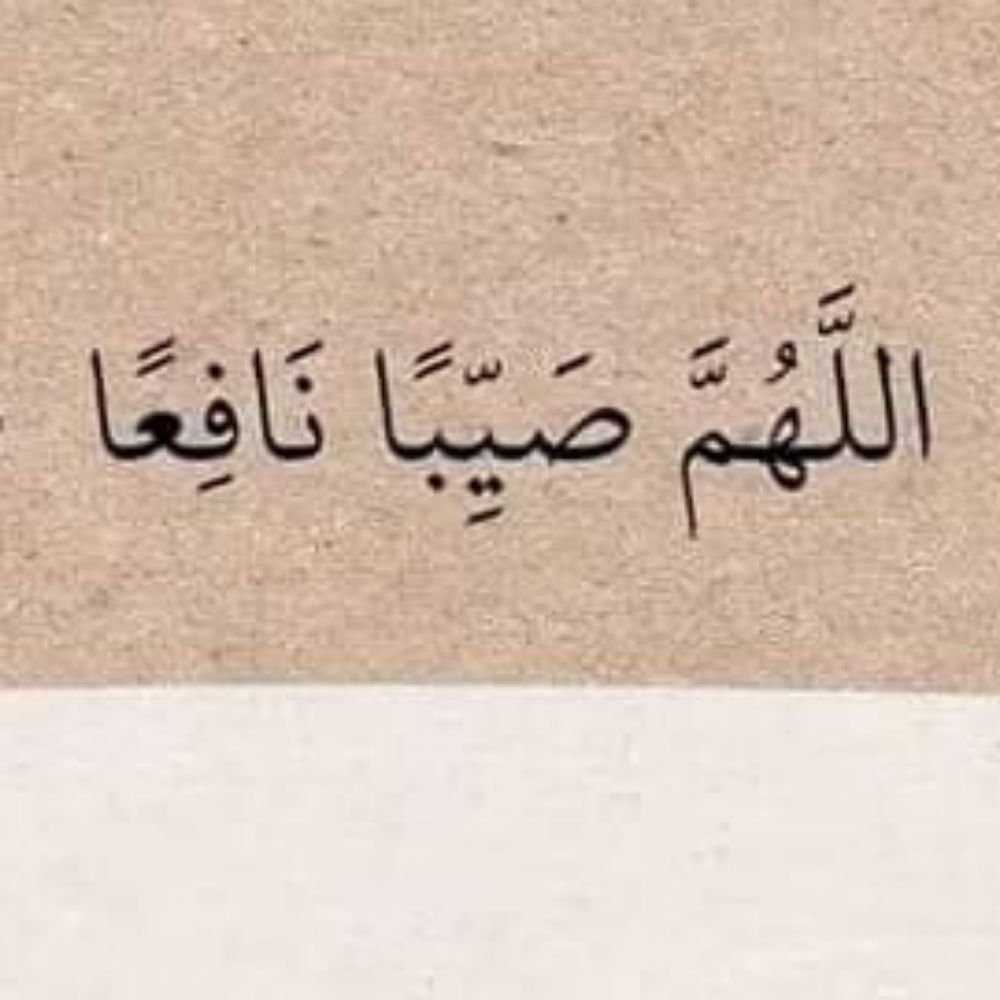 اللَّهُمَّ صَيِّبًا نَافِعًا